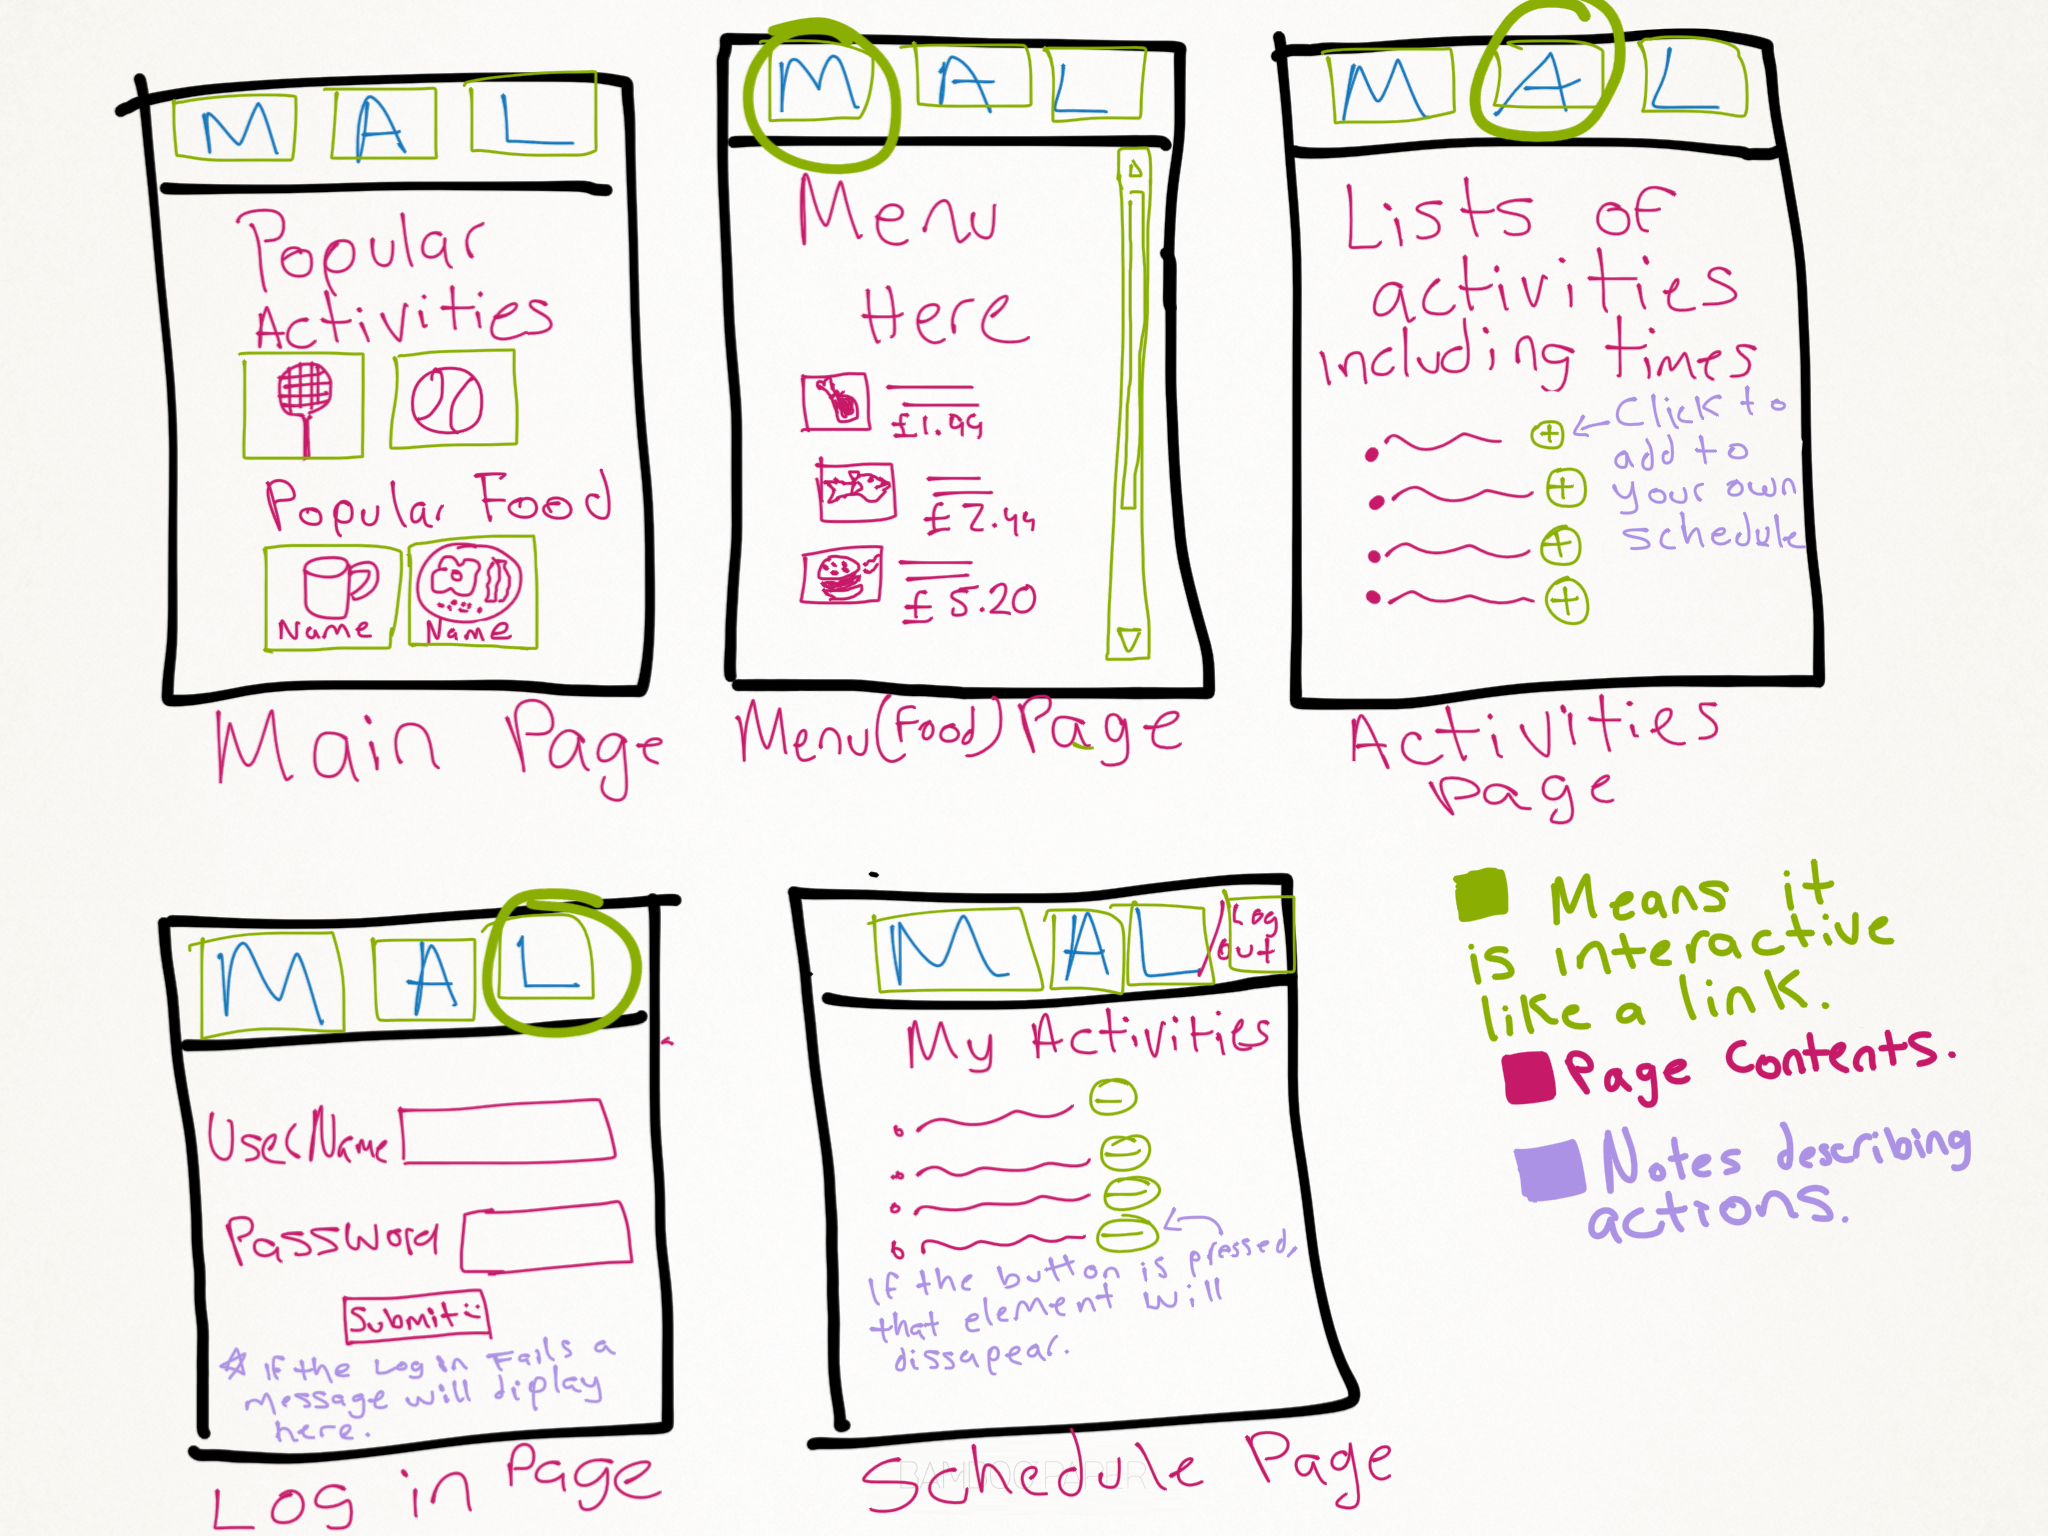 M A L
Popular
Activities
Popular Food
Name Name
Main Page
M A L
Menu
Here
£1.99
£2.44
£5.20
Menu (Food) Page
M A L
Lists of
activities
including times
Click to
add to
your own
schedule
Activities
Page
M A L
UserName
Password
Submit
If the Log in Fails a
message will diplay
here.
Log in Page
M A L / Log
out
My Activities
If the button is pressed,
that element will
dissapear.
Schedule Page
BAMBOO PAPER
Means it
is interactive
like a link.
Page Contents.
Notes describing
actions.